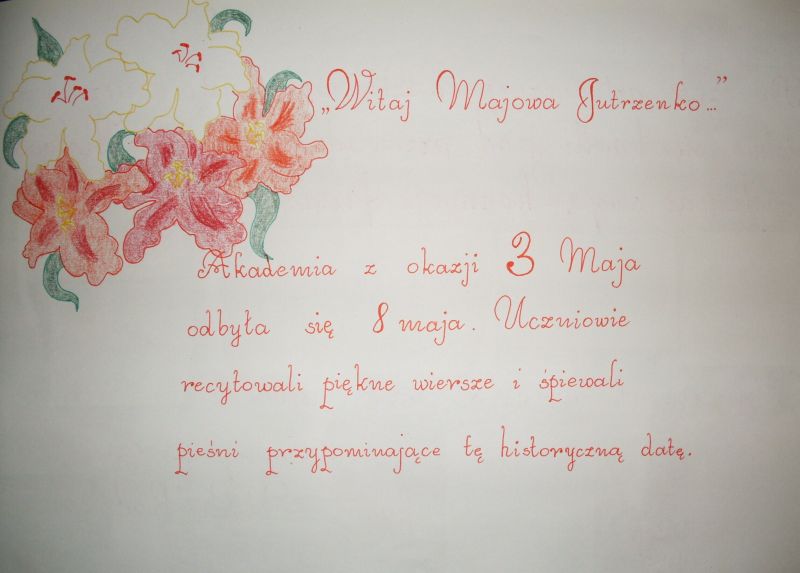 „Witaj Majowa Jutrzenko..."
Akademia z okazji 3 Maja
odbyła się 8 maja. Uczniowie
recytowali piękne wiersze i śpiewali
pieśni przypominające tę historyczną datę.